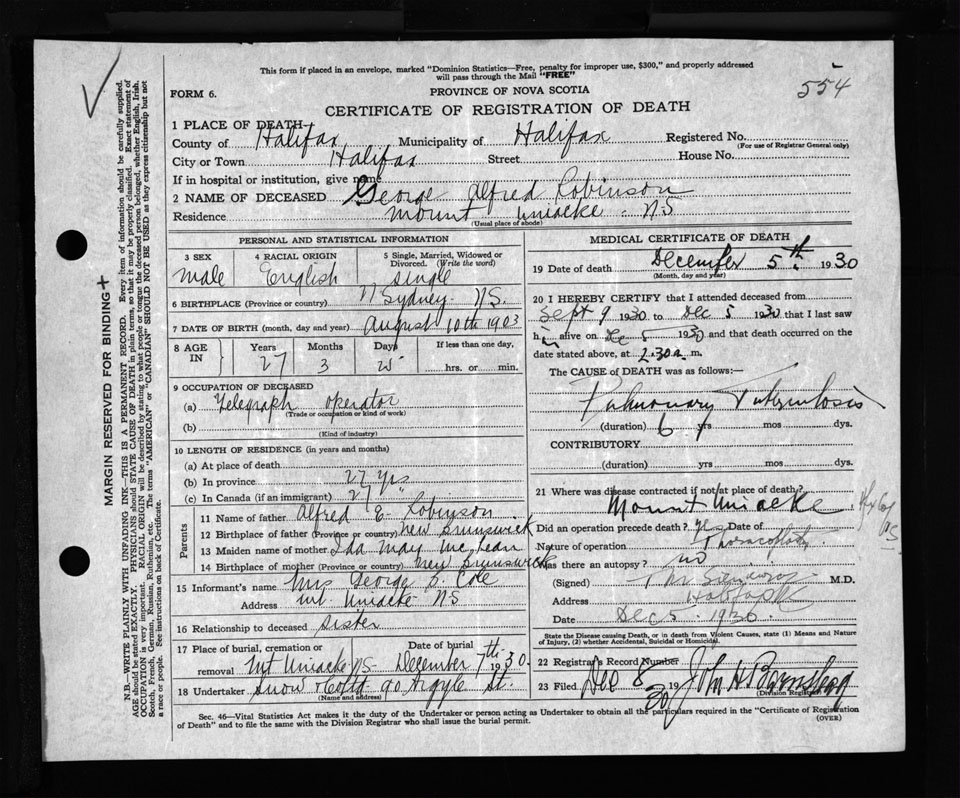 This form if placed in an envelope, marked "Dominion Statistics—Free, penalty for improper use, $300," and properly addressed
will pass through the Mail "FREE"
554
FORM 6.
PROVINCE OF NOVA SCOTIA
CERTIFICATE OF REGISTRATION OF DEATH
1 PLACE OF DEATH—
County of Halifax Municipality of Halifax Registered No.
(For use of Registrar General only)
City or Town Halifax Street House No.
If in hospital or institution, give name
2 NAME OF DECEASED George Alfred Robinson
Residence Mount Uniacke - NS
(Usual place of abode)
PERSONAL AND STATISTICAL INFORMATION
3 SEX 4 RACIAL ORIGIN 5 Single, Married, Widowed or Divorced. (Write the word)
male English single
6 BIRTHPLACE (Province or country) N Sydney - NS.
7 DATE OF BIRTH (month, day and year) August 10th 1903
8 AGE IN Years Months Days If less than one day,
27 3 25 hrs. or min.
9 OCCUPATION OF DECEASED
(a) Telegraph operator
(Trade or occupation or kind of work)
(b)
(Kind of industry)
10 LENGTH OF RESIDENCE (in years and months)
(a) At place of death
(b) In province 27 yrs
(c) In Canada (if an immigrant) 27 "
Parents
11 Name of father Alfred E Robinson
12 Birthplace of father (Province or country) New Brunswick
13 Maiden name of mother Ida May McLean
14 Birthplace of mother (Province or country) New Brunswick
15 Informant's name Mrs George S. Cole
Address Mt. Uniacke NS
16 Relationship to deceased sister
17 Place of burial, cremation or removal Mt Uniacke NS Date of burial December 7th 1930
18 Undertaker Snow & Co Ltd 90 Argyle St.
(Name and address)
MEDICAL CERTIFICATE OF DEATH
19 Date of death December 5th 1930
(Month, day and year)
20 I HEREBY CERTIFY that I attended deceased from
Sept 9 1930 to Dec 5 1930 that I last saw
him alive on Dec 5 1930 and that death occurred on the
date stated above, at 2.30 a m.
The CAUSE of DEATH was as follows:
Pulmonary Tuberculosis
(duration) 6 yrs mos dys.
CONTRIBUTORY
(duration) yrs mos dys.
21 Where was disease contracted if not at place of death?
Mount Uniacke
Did an operation precede death? Date of
Nature of operation
Was there an autopsy? no
(Signed) M.D.
Address Halifax
Date Dec 5 1930
State the Disease causing Death, or in death from Violent Causes, state (1) Means and Nature
of Injury, (2) whether Accidental, Suicidal or Homicidal.
22 Registrar's Record Number
23 Filed Dec 8 1930 John H Barnstead
(Division Registrar)
Sec. 46—Vital Statistics Act makes it the duty of the Undertaker or person acting as Undertaker to obtain all the particulars required in the "Certificate of Registration
of Death" and to file the same with the Division Registrar who shall issue the burial permit.
(OVER)
MARGIN RESERVED FOR BINDING
N.B.—WRITE PLAINLY WITH UNFADING INK—THIS IS A PERMANENT RECORD. Every item of information should be carefully supplied.
AGE should be stated EXACTLY. PHYSICIANS should STATE CAUSE OF DEATH in plain terms, so that it may be properly classified. Exact statement of
OCCUPATION is very important. RACIAL ORIGIN will be described by stating to what people or tongue the deceased person belonged, whether English, Irish,
Scotch, French, German, Russian, Ruthenian, etc. The terms "AMERICAN" or "CANADIAN" SHOULD NOT BE USED as they express citizenship but not
a race or people. See instructions on back of Certificate.